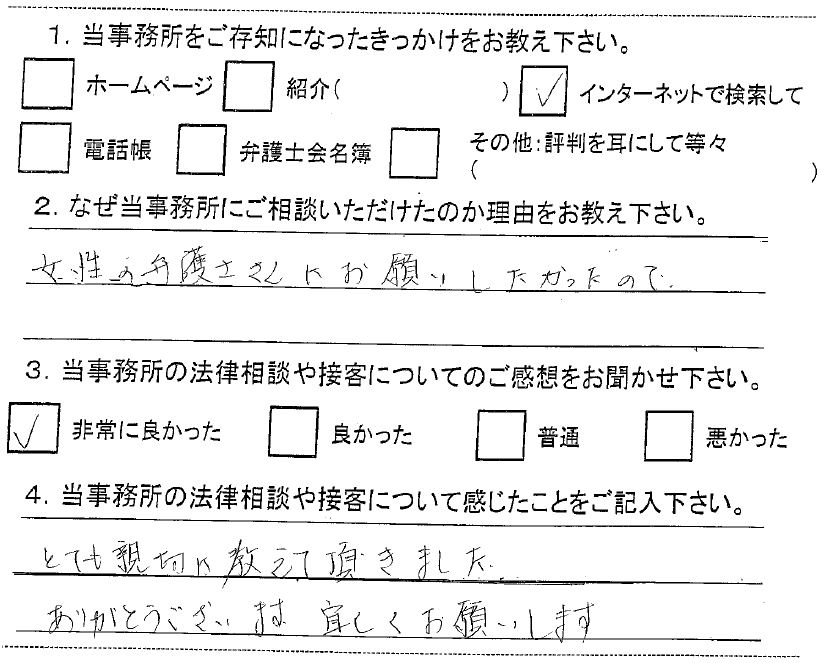 1. 当事務所をご存知になったきっかけをお教え下さい。
ホームページ 紹介( ) ✓ インターネットで検索して
電話帳 弁護士会名簿 その他:評判を耳にして等々
( )
2. なぜ当事務所にご相談いただけたのか理由をお教え下さい。
女性の弁護士さんにお願いしたかったので.
3. 当事務所の法律相談や接客についてのご感想をお聞かせ下さい。
✓ 非常に良かった 良かった 普通 悪かった
4. 当事務所の法律相談や接客について感じたことをご記入下さい。
とても親切に教えて頂きました.
ありがとうございます 宜しくお願いします